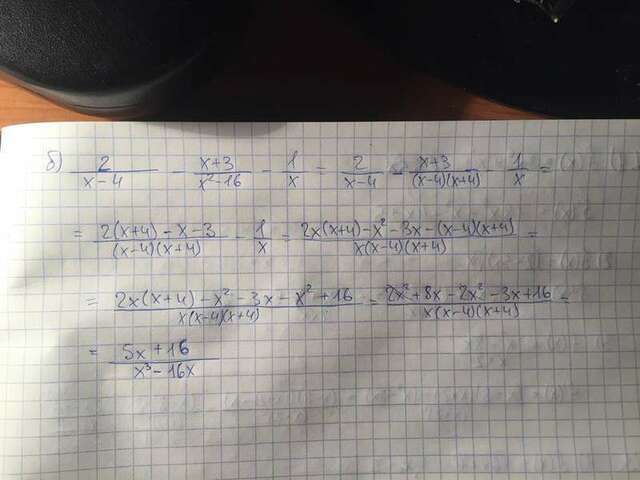 б) 2/(x-4) - (x+3)/(x²-16) - 1/x = 2/(x-4) - (x+3)/((x-4)(x+4)) - 1/x =
= (2(x+4)-x-3)/((x-4)(x+4)) - 1/x = (2x(x+4)-x²-3x-(x-4)(x+4))/(x(x-4)(x+4)) =
= (2x(x+4)-x²-3x-x²+16)/(x(x-4)(x+4)) = (2x²+8x-2x²-3x+16)/(x(x-4)(x+4)) =
= (5x+16)/(x³-16x)